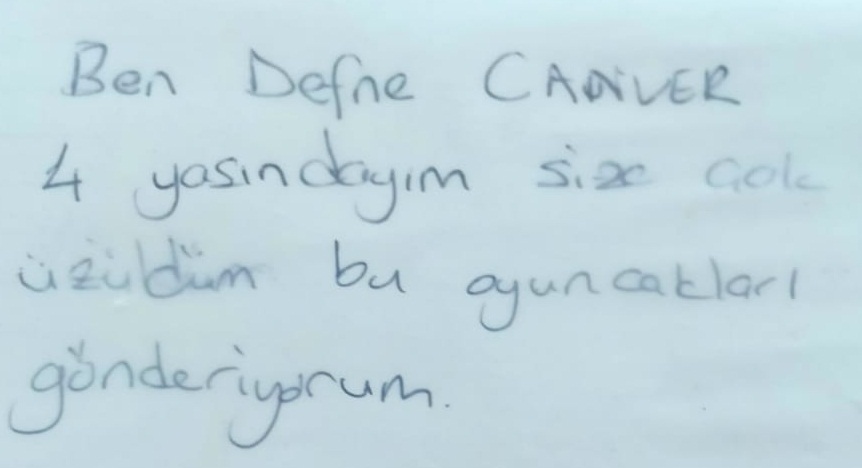 Ben Defne CANVER
4 yasındayım size çok
üzüldüm bu oyuncakları
gönderiyorum.